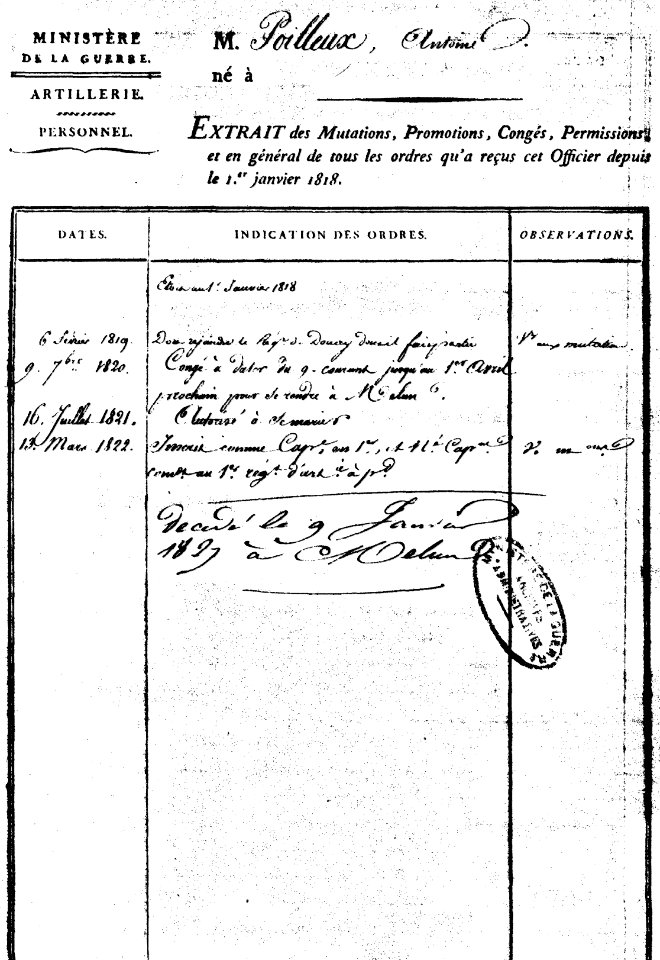 MINISTÈRE
DE LA GUERRE.
ARTILLERIE.
PERSONNEL.
M. Poilleux, Antoine
né à
EXTRAIT des Mutations, Promotions, Congés, Permissions,
et en général de tous les ordres qu'a reçus cet Officier depuis
le 1.er janvier 1818.
DATES. INDICATION DES ORDRES. OBSERVATIONS.
au 1.er Janvier 1818
6 Février 1819. rejoindre le de Douay V. aux mutations
9. 7bre 1820. Congé à dater du 9 courant jusqu'au 1er Avril
prochain pour se rendre à Melun
16. Juillet 1821. Autorisé à se marier
13. Mars 1822. Inscrit comme Cap. au 1er, et Cap. V.
au 1er régt. d'art.ie à pd
Décédé le 9 Janvier
1827 à Melun
DE LA GUERRE
ARCHIVES
ADMINISTRATIVES